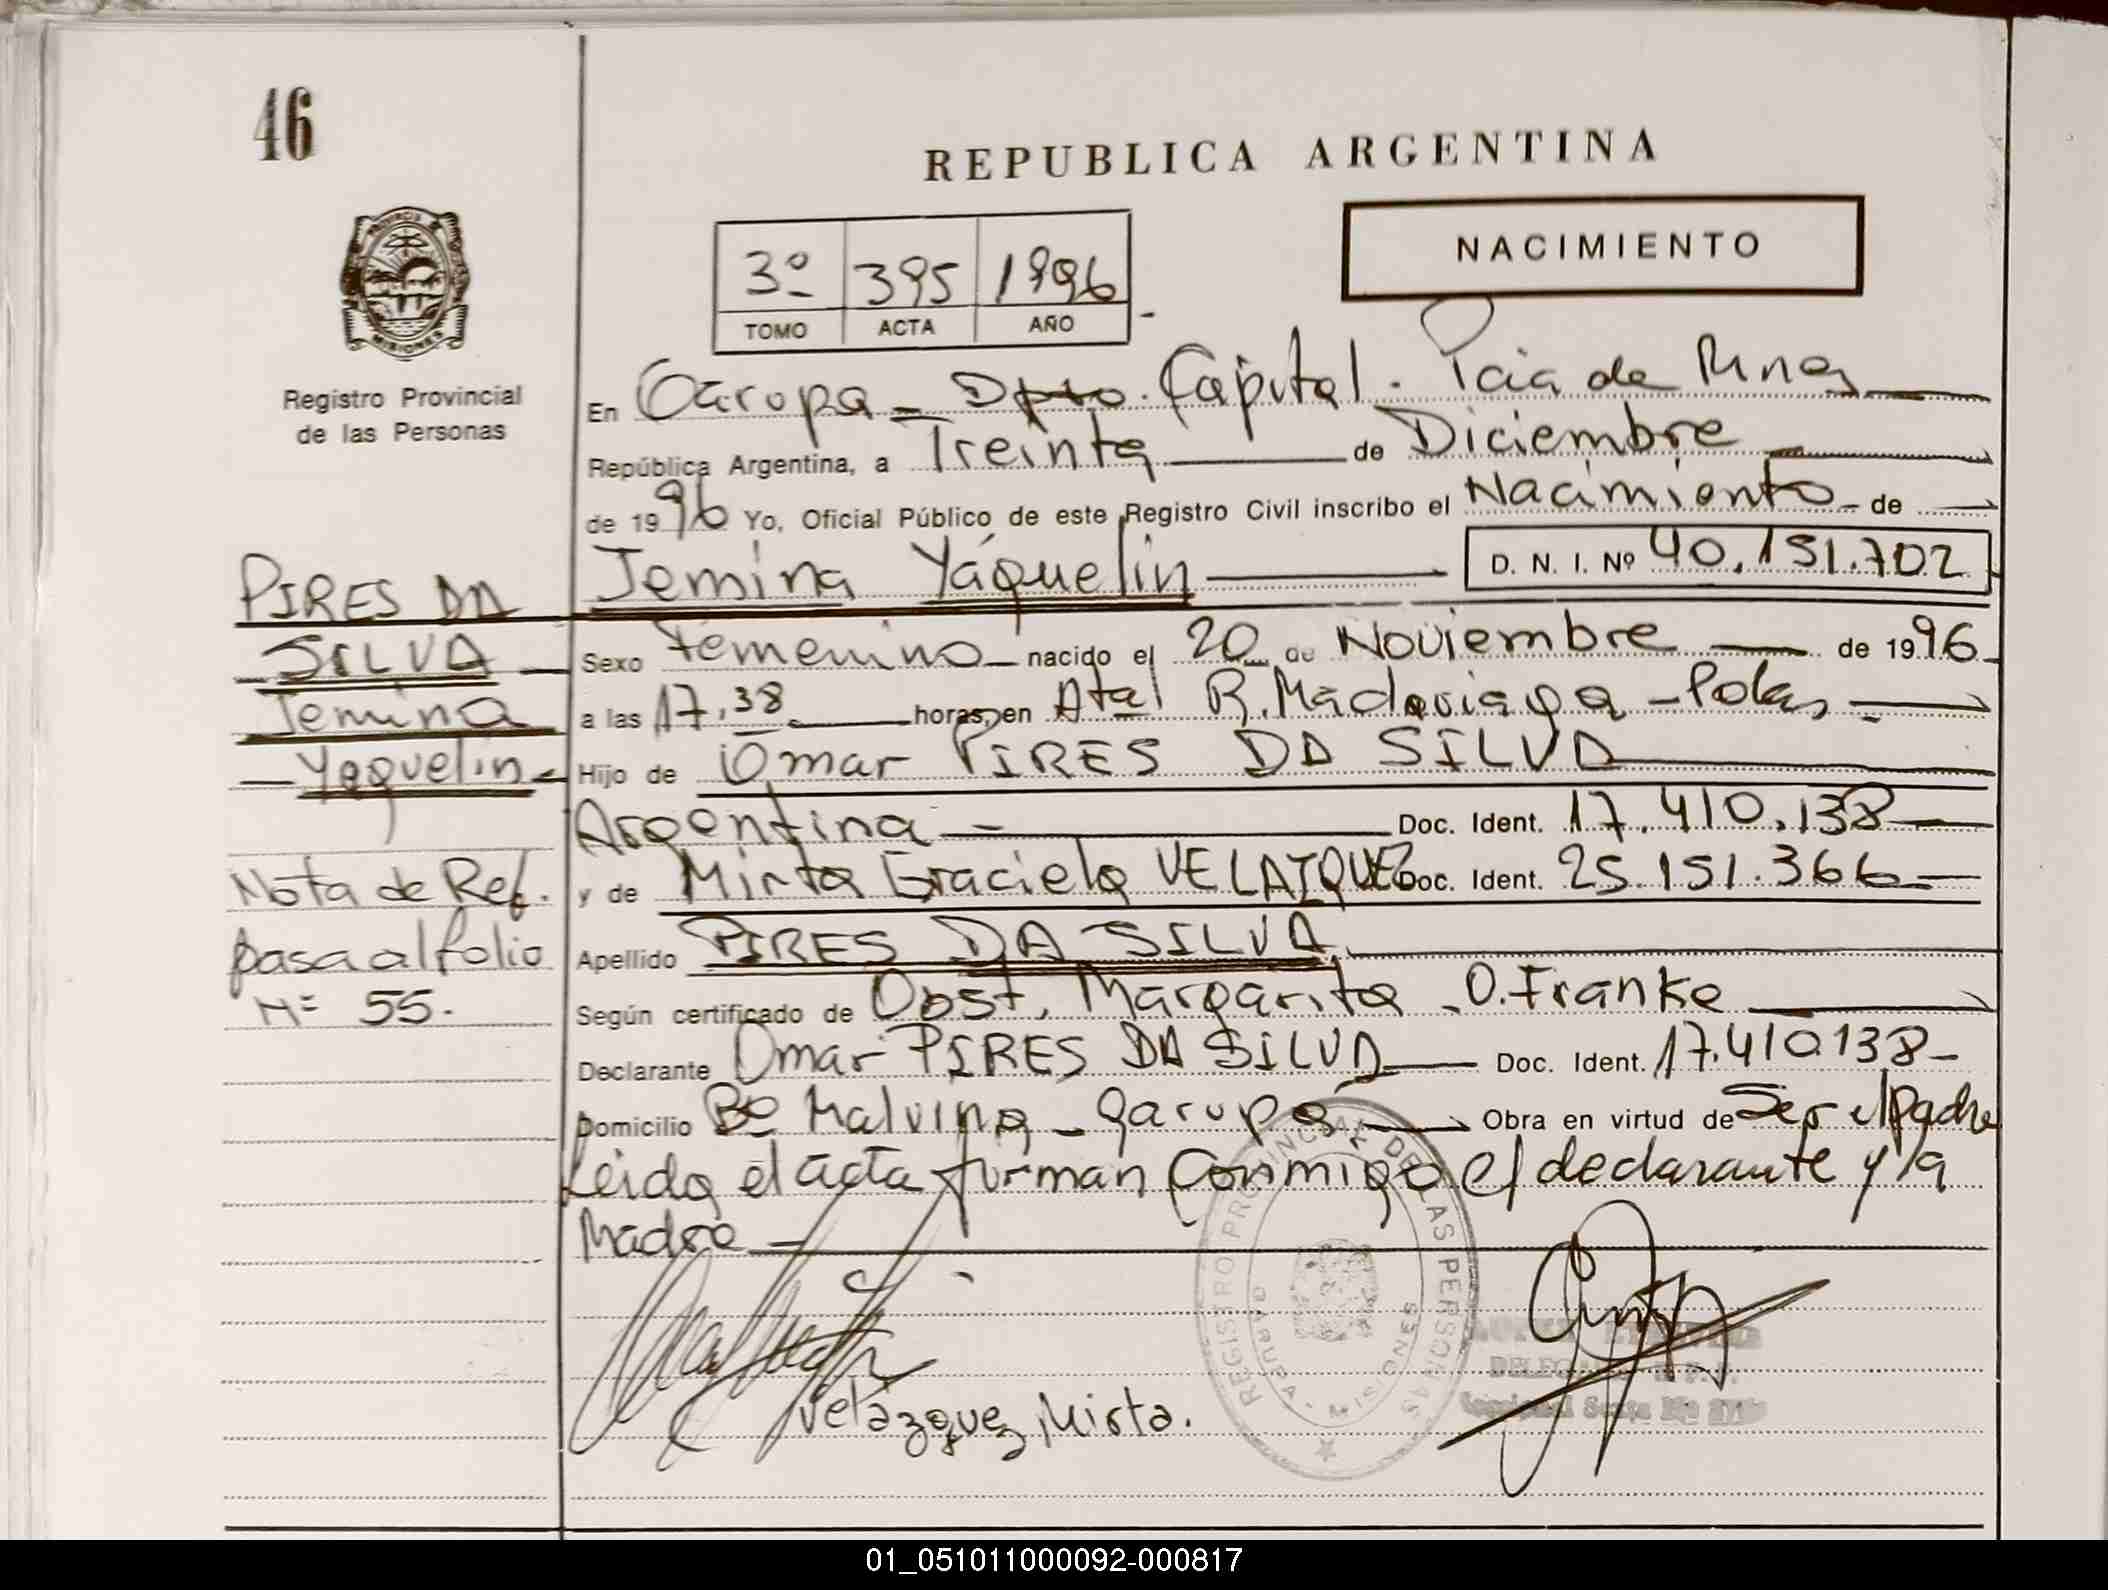 46
REPUBLICA ARGENTINA
NACIMIENTO
3º 395 1996
TOMO ACTA AÑO
PROVINCIA DE MISIONES
Registro Provincial
de las Personas
En Garupa - Dpto. Capital. Pcia de Mnes
República Argentina, a Treinta de Diciembre
de 1996 Yo, Oficial Público de este Registro Civil inscribo el Nacimiento de
Jemina Yaquelin D. N. I. Nº 40.151.702
PIRES DA
SILVA
Jemina
Yaquelin
Sexo Femenino nacido el 20 de Noviembre de 1996
a las 17,38 horas, en Atal R. Madariaga - Pdas
Hijo de Omar PIRES DA SILVA
Argentina Doc. Ident. 17.410.138
y de Mirta Graciela VELAZQUEZ Doc. Ident. 25.151.366
Apellido PIRES DA SILVA
Según certificado de Obst. Margarita O. Franke
Declarante Omar PIRES DA SILVA Doc. Ident. 17.410.138
Domicilio Bº Malvina - Garupá Obra en virtud de Ser el padre
Leida el acta firman conmigo el declarante y la
Madre
Nota de Ref.
pasa al folio
Nº 55.
Velázquez Mirta.
REGISTRO PROVINCIAL DE LAS PERSONAS
GARUPA - MISIONES
01_051011000092-000817